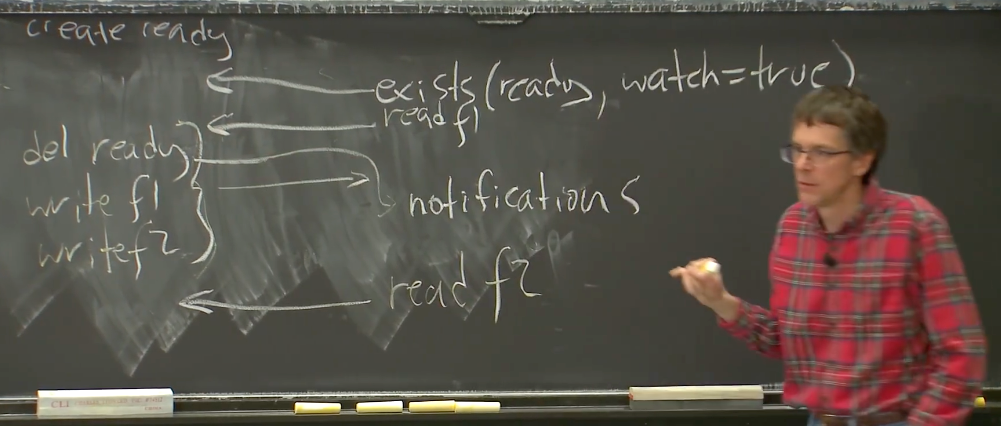 create ready
exists(ready, watch=true)
read f1
del ready
write f1
notifications
write f2
read f2
CLI